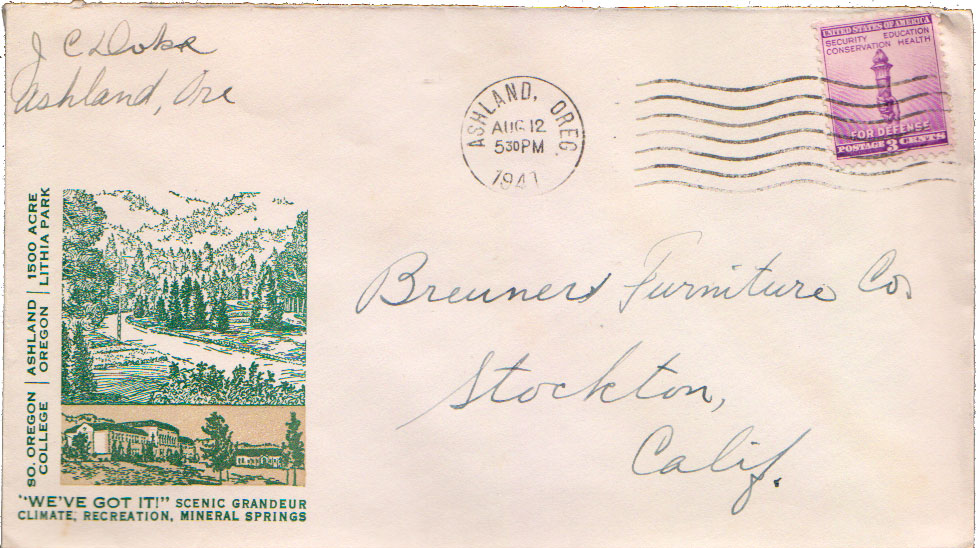 J C Doke
Ashland, Ore
ASHLAND, OREG.
AUG 12
530 PM
1941
UNITED STATES OF AMERICA
SECURITY EDUCATION
CONSERVATION HEALTH
FOR DEFENSE
POSTAGE 3 CENTS
Breuners Furniture Co
Stockton,
Calif.
SO. OREGON | ASHLAND | 1500 ACRE
COLLEGE | OREGON | LITHIA PARK
"WE'VE GOT IT!" SCENIC GRANDEUR
CLIMATE, RECREATION, MINERAL SPRINGS